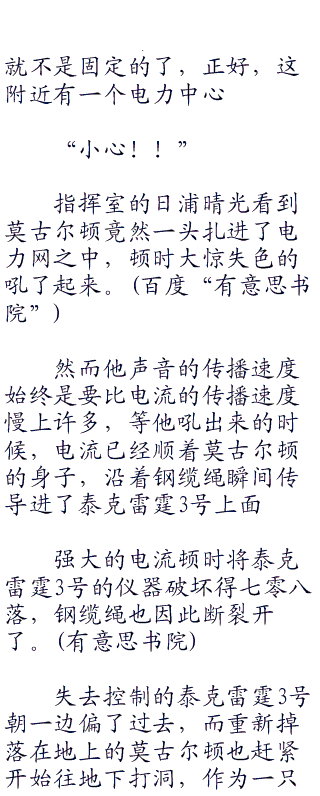 就不是固定的了，正好，这
附近有一个电力中心
“小心！！”
指挥室的日浦晴光看到
莫古尔顿竟然一头扎进了电
力网之中，顿时大惊失色的
吼了起来。(百度“有意思书
院”)
然而他声音的传播速度
始终是要比电流的传播速度
慢上许多，等他吼出来的时
候，电流已经顺着莫古尔顿
的身子，沿着钢缆绳瞬间传
导进了泰克雷霆3号上面
强大的电流顿时将泰克
雷霆3号的仪器破坏得七零八
落，钢缆绳也因此断裂开
了。(有意思书院)
失去控制的泰克雷霆3号
朝一边偏了过去，而重新掉
落在地上的莫古尔顿也赶紧
开始往地下打洞，作为一只